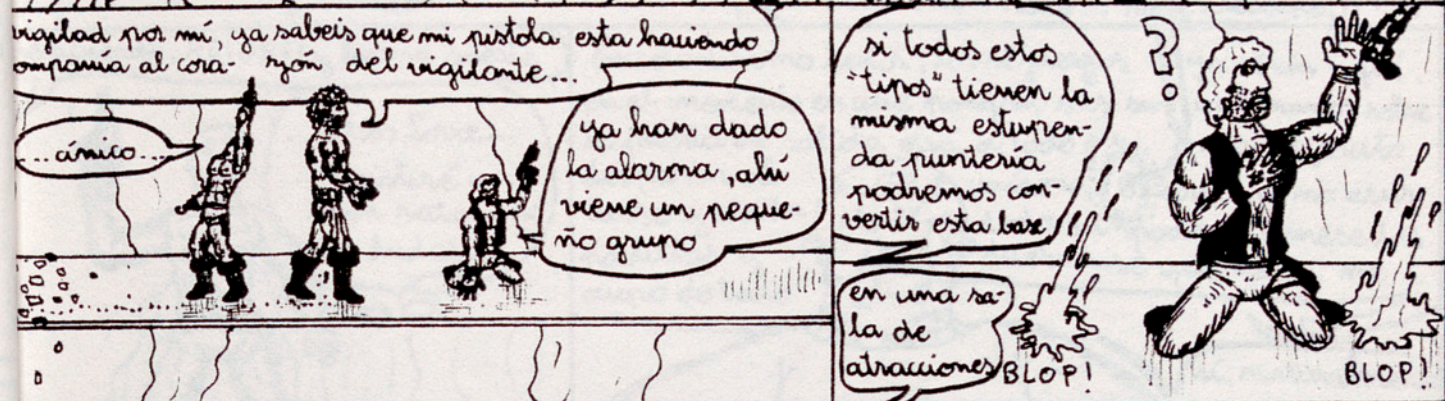 vigilad por mí, ya sabeis que mi pistola esta haciendo
ompania al cora- zón del vigilante...
....ánico....
ya han dado
la alarma, ahí
viene un peque-
ño grupo
si todos estos
"tipos" tienen la
misma estupen-
da puntería
podremos con-
vertir esta base
en una sa-
la de
atracciones
?
BLOP!
BLOP!